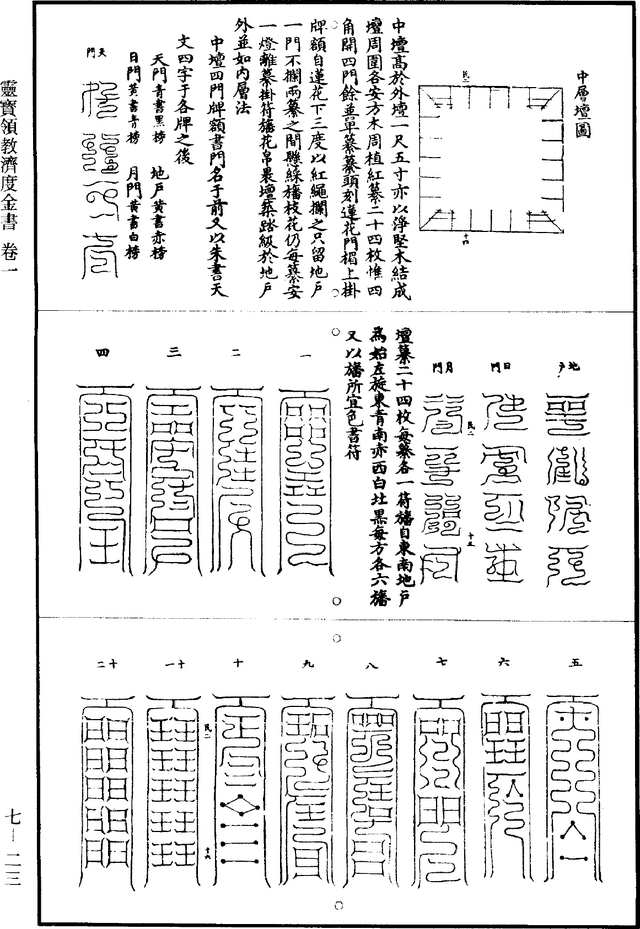 靈寶領教濟度金書 卷一
七－二三
中層壇圖
民二
十四
中壇高於外壇一尺五寸亦以淨堅木結成
壇周圍各安方木周植紅纂二十四枚惟四
角開四門餘並單纂纂頭刻蓮花門楣上掛
牌額自蓮花下三度以紅繩攔之只留地戶
一門不攔兩纂之間懸綵旛枝花仍每纂安
一燈離纂掛符旛花帛裹壇築踏級於地戶
外並如內層法
中壇四門牌額書門名于前又以朱書天
文四字于各牌之後
天門青書黑榜 地戶黃書赤榜
日門黃書青榜 月門黃書白榜
天門
地戶
日門
民二
十五
月門
壇纂二十四枚每纂各一符旛自東南地戶
為始左旋東青南赤西白北黑每方各六旛
又以旛所宜色書符
一
二
三
四
五
六
七
八
九
十
民二
十六
十一
十二